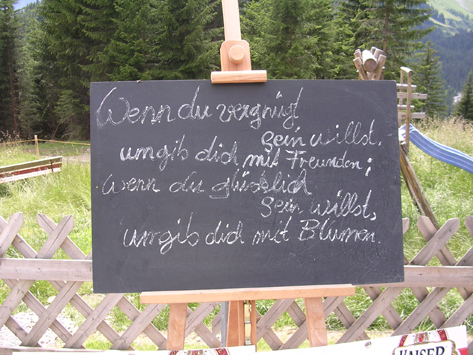 Wenn du vergnügt
sein willst,
umgib dich mit Freunden;
wenn du glücklich
sein willst,
umgib dich mit Blumen.
KAISER